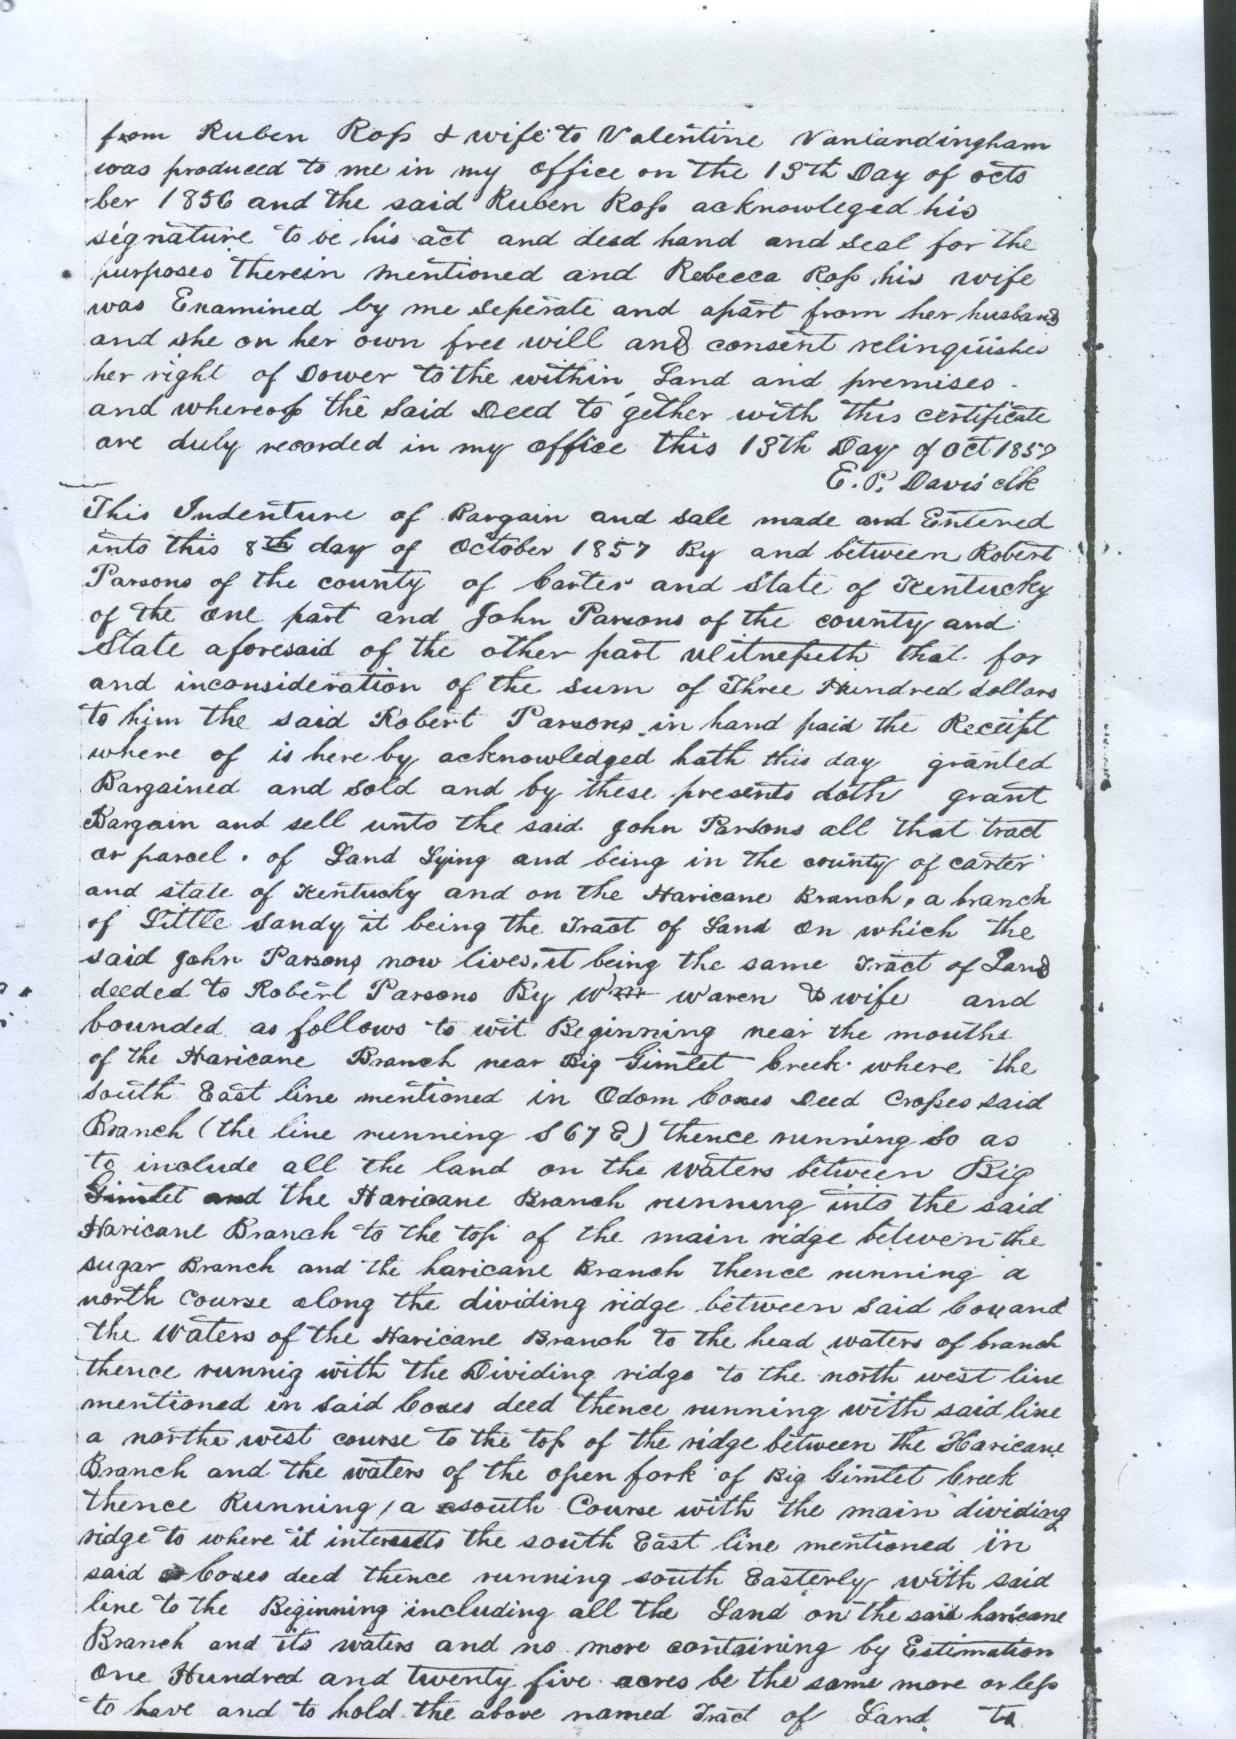 from Ruben Ross & wife to Valentine Vanlandingham
was produced to me in my office on the 13th Day of octo
ber 1856 and the said Ruben Ross acknowleged his
signature to be his act and deed hand and seal for the
purposes therein mentioned and Rebecca Ross his wife
was Examined by me seperate and apart from her husband
and she on her own free will and consent relinquishes
her right of Dower to the within Land and premises.
and whereof the said Deed to gether with this certificate
are duly recorded in my office this 13th Day of Oct 1857
E. P. Davis clk
This Indenture of Bargain and sale made and Entered
into this 8th day of October 1857 By and between Robert
Parsons of the county of Carter and State of Kentucky
of the one part and John Parsons of the county and
State aforesaid of the other part Witnesseth that for
and inconsideration of the sum of Three Hundred dollars
to him the said Robert Parsons in hand paid the Receipt
where of is here by acknowledged hath this day granted
Bargained and sold and by these presents doth grant
Bargain and sell unto the said John Parsons all that tract
or parcel. of Land Lying and being in the county of carter
and state of Kentucky and on the Haricane Branch, a branch
of Little Sandy it being the Tract of Land on which the
said John Parsons now lives, it being the same Tract of Land
deeded to Robert Parsons By Wm Waren & wife and
bounded as follows to wit Beginning near the mouthe
of the Haricane Branch near Big Gimlet Creek where the
south East line mentioned in Odom Coxes Deed Crosses said
Branch (the line running S 67 E) thence running so as
to include all the land on the waters between Big
Gimlet and the Haricane Branch running into the said
Haricane Branch to the top of the main ridge between the
sugar Branch and the haricane Branch thence running a
north Course along the dividing ridge between said Cox and
the Waters of the Haricane Branch to the head waters of branch
thence runnig with the Dividing ridge to the north west line
mentioned in said Coxes deed thence running with said line
a northe west course to the top of the ridge between the Haricane
Branch and the waters of the open fork of Big Gimlet Creek
thence Running a south Course with the main dividing
ridge to where it intersects the south East line mentioned in
said Coxes deed thence running south Easterly with said
line to the Beginning including all the Land on the said haricane
Branch and its waters and no more containing by Estimation
One Hundred and twenty five acres be the same more or less
to have and to hold the above named Tract of Land to